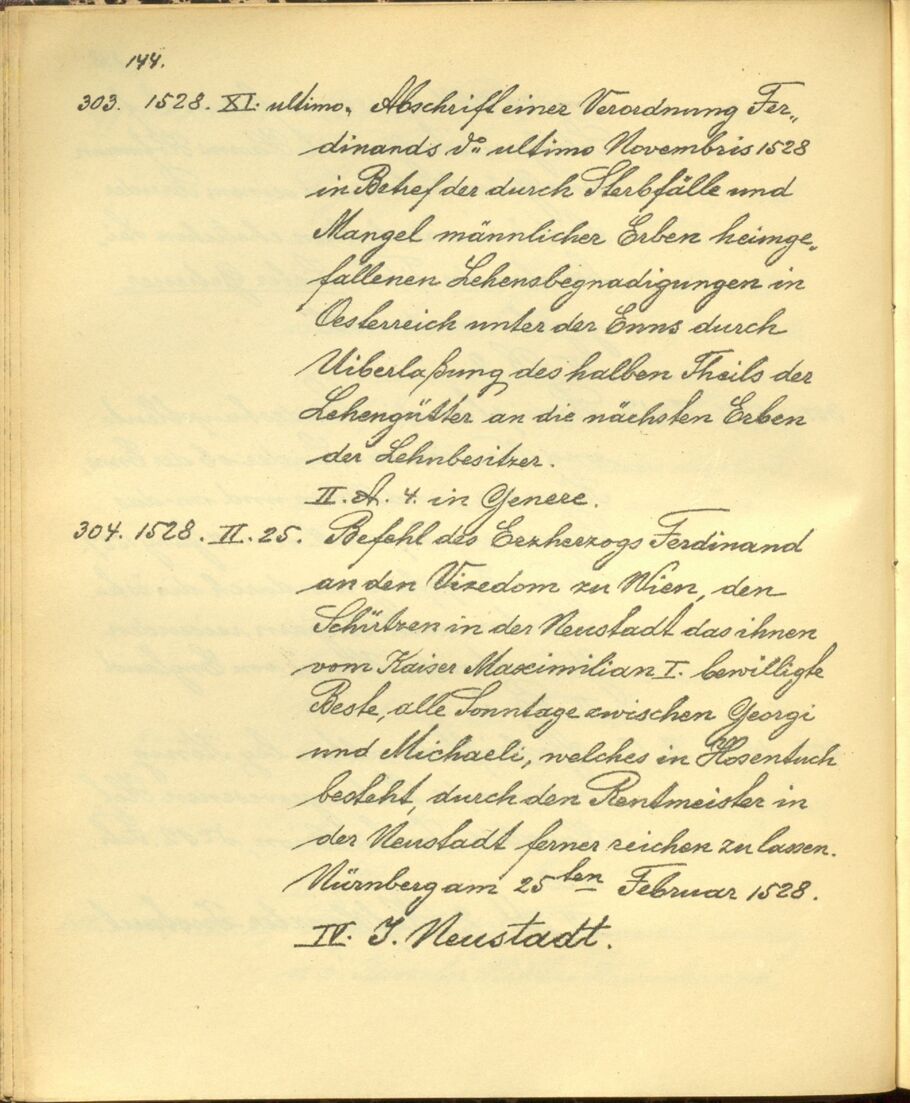 144.
303. 1528. XI. ultimo. Abschrift einer Verordnung Fer„
dinands do ultimo Novembris 1528
in Betref der durch Sterbfälle und
Mangel männlicher Erben heimge„
fallenen Lehensbegnadigungen in
Oesterreich unter der Enns durch
Uiberlaßung des halben Theils der
Lehengütter an die nächsten Erben
der Lehnbesitzer.
II. A. 4. in Genere.
304. 1528. II. 25. Befehl des Erzherzogs Ferdinand
an den Vizedom zu Wien, den
Schützen in der Neustadt das ihnen
vom Kaiser Maximilian I. bewilligte
Beste, alle Sonntage zwischen Georgi
und Michaeli, welches in Hosentuch
besteht, durch den Rentmeister in
der Neustadt ferner reichen zu lassen.
Nürnberg am 25ten Februar 1528.
IV. J. Neustadt.